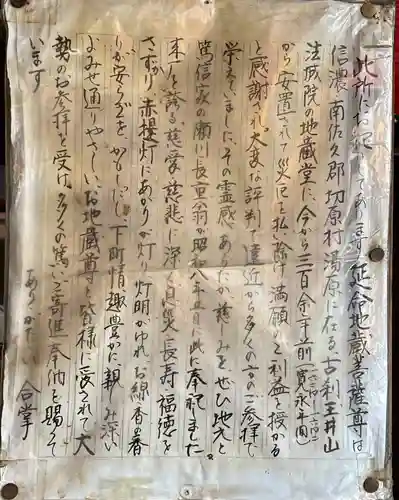 此所にお祀りしてあります延命地蔵菩薩尊は
信濃南佐久郡切原村湯原に在る古刹玉井山
法城院の地蔵堂に、今から三百余年前(寛永年間)
から安置されて災厄を払い除け満願のご利益を授かる
と感謝され大変な評判で遠近から多くの方のご参拝で
栄えていました その霊感あらたか、慈しみをぜひ地元と
篤信家の瀬川長重翁が昭和八年五月に此に奉祀しました
来、誇る慈愛慈悲に深く息災長寿福徳を
さずかり 赤提灯にあかりが灯り灯明がゆれ お線香の香
りが安らぎをかもしだし 下町情趣豊かに親しみ深い
よみせ通りやさしいお地蔵尊と皆様に慕されて大
勢のお参拝を受け、多くの篤いご寄進奉納を賜って
います
ありがたい 合掌